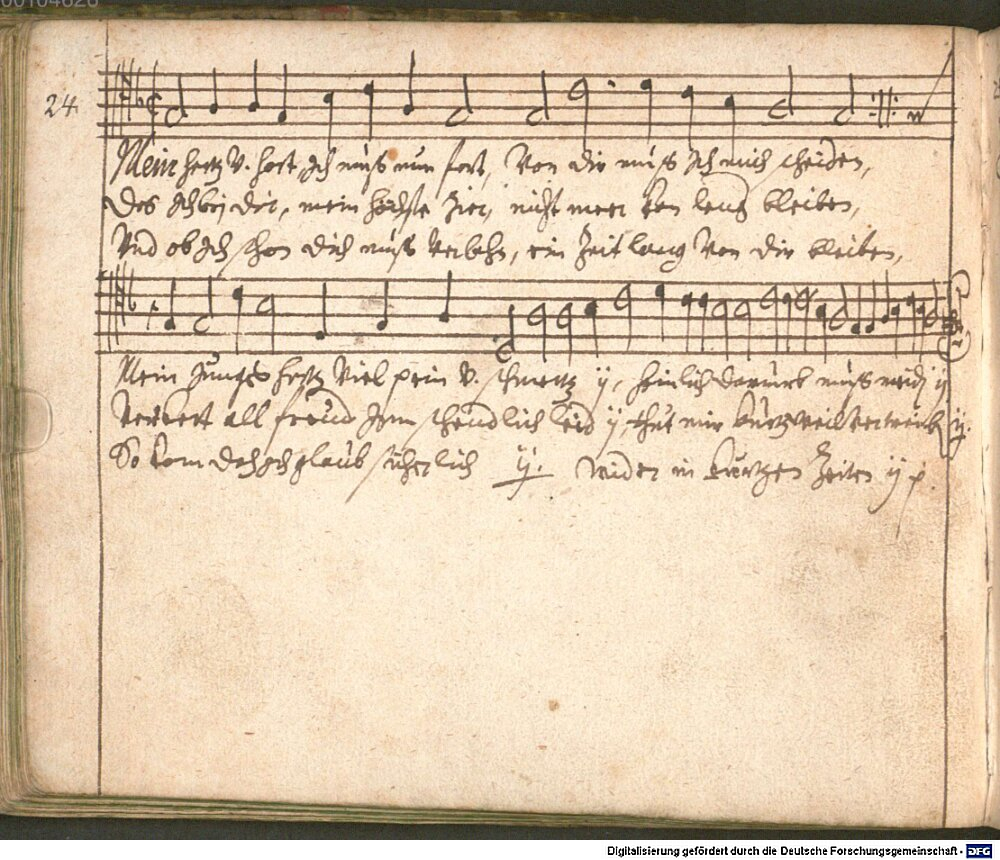 00104626
24.
Mein hertz v. hort, Ich muß nun fort, Von dir muß Ich mich scheiden,
Das Ich bej dir, mein höchste Zier, nicht meer kan lang bleiben,
Vnd ob Ich schon dich muß verlahn, ein Zeit lang von dir bleiben,
Mein Junges hertz viel pein v. schmertz ij, heimlich darumb muß ij
all freud schendlich leid ij, thut mir kurtzweil ij.
So kom doch Ich glaub sicherlich ij. wider in kurtzen Zeiten ij
Digitalisierung gefördert durch die Deutsche Forschungsgemeinschaft - DFG